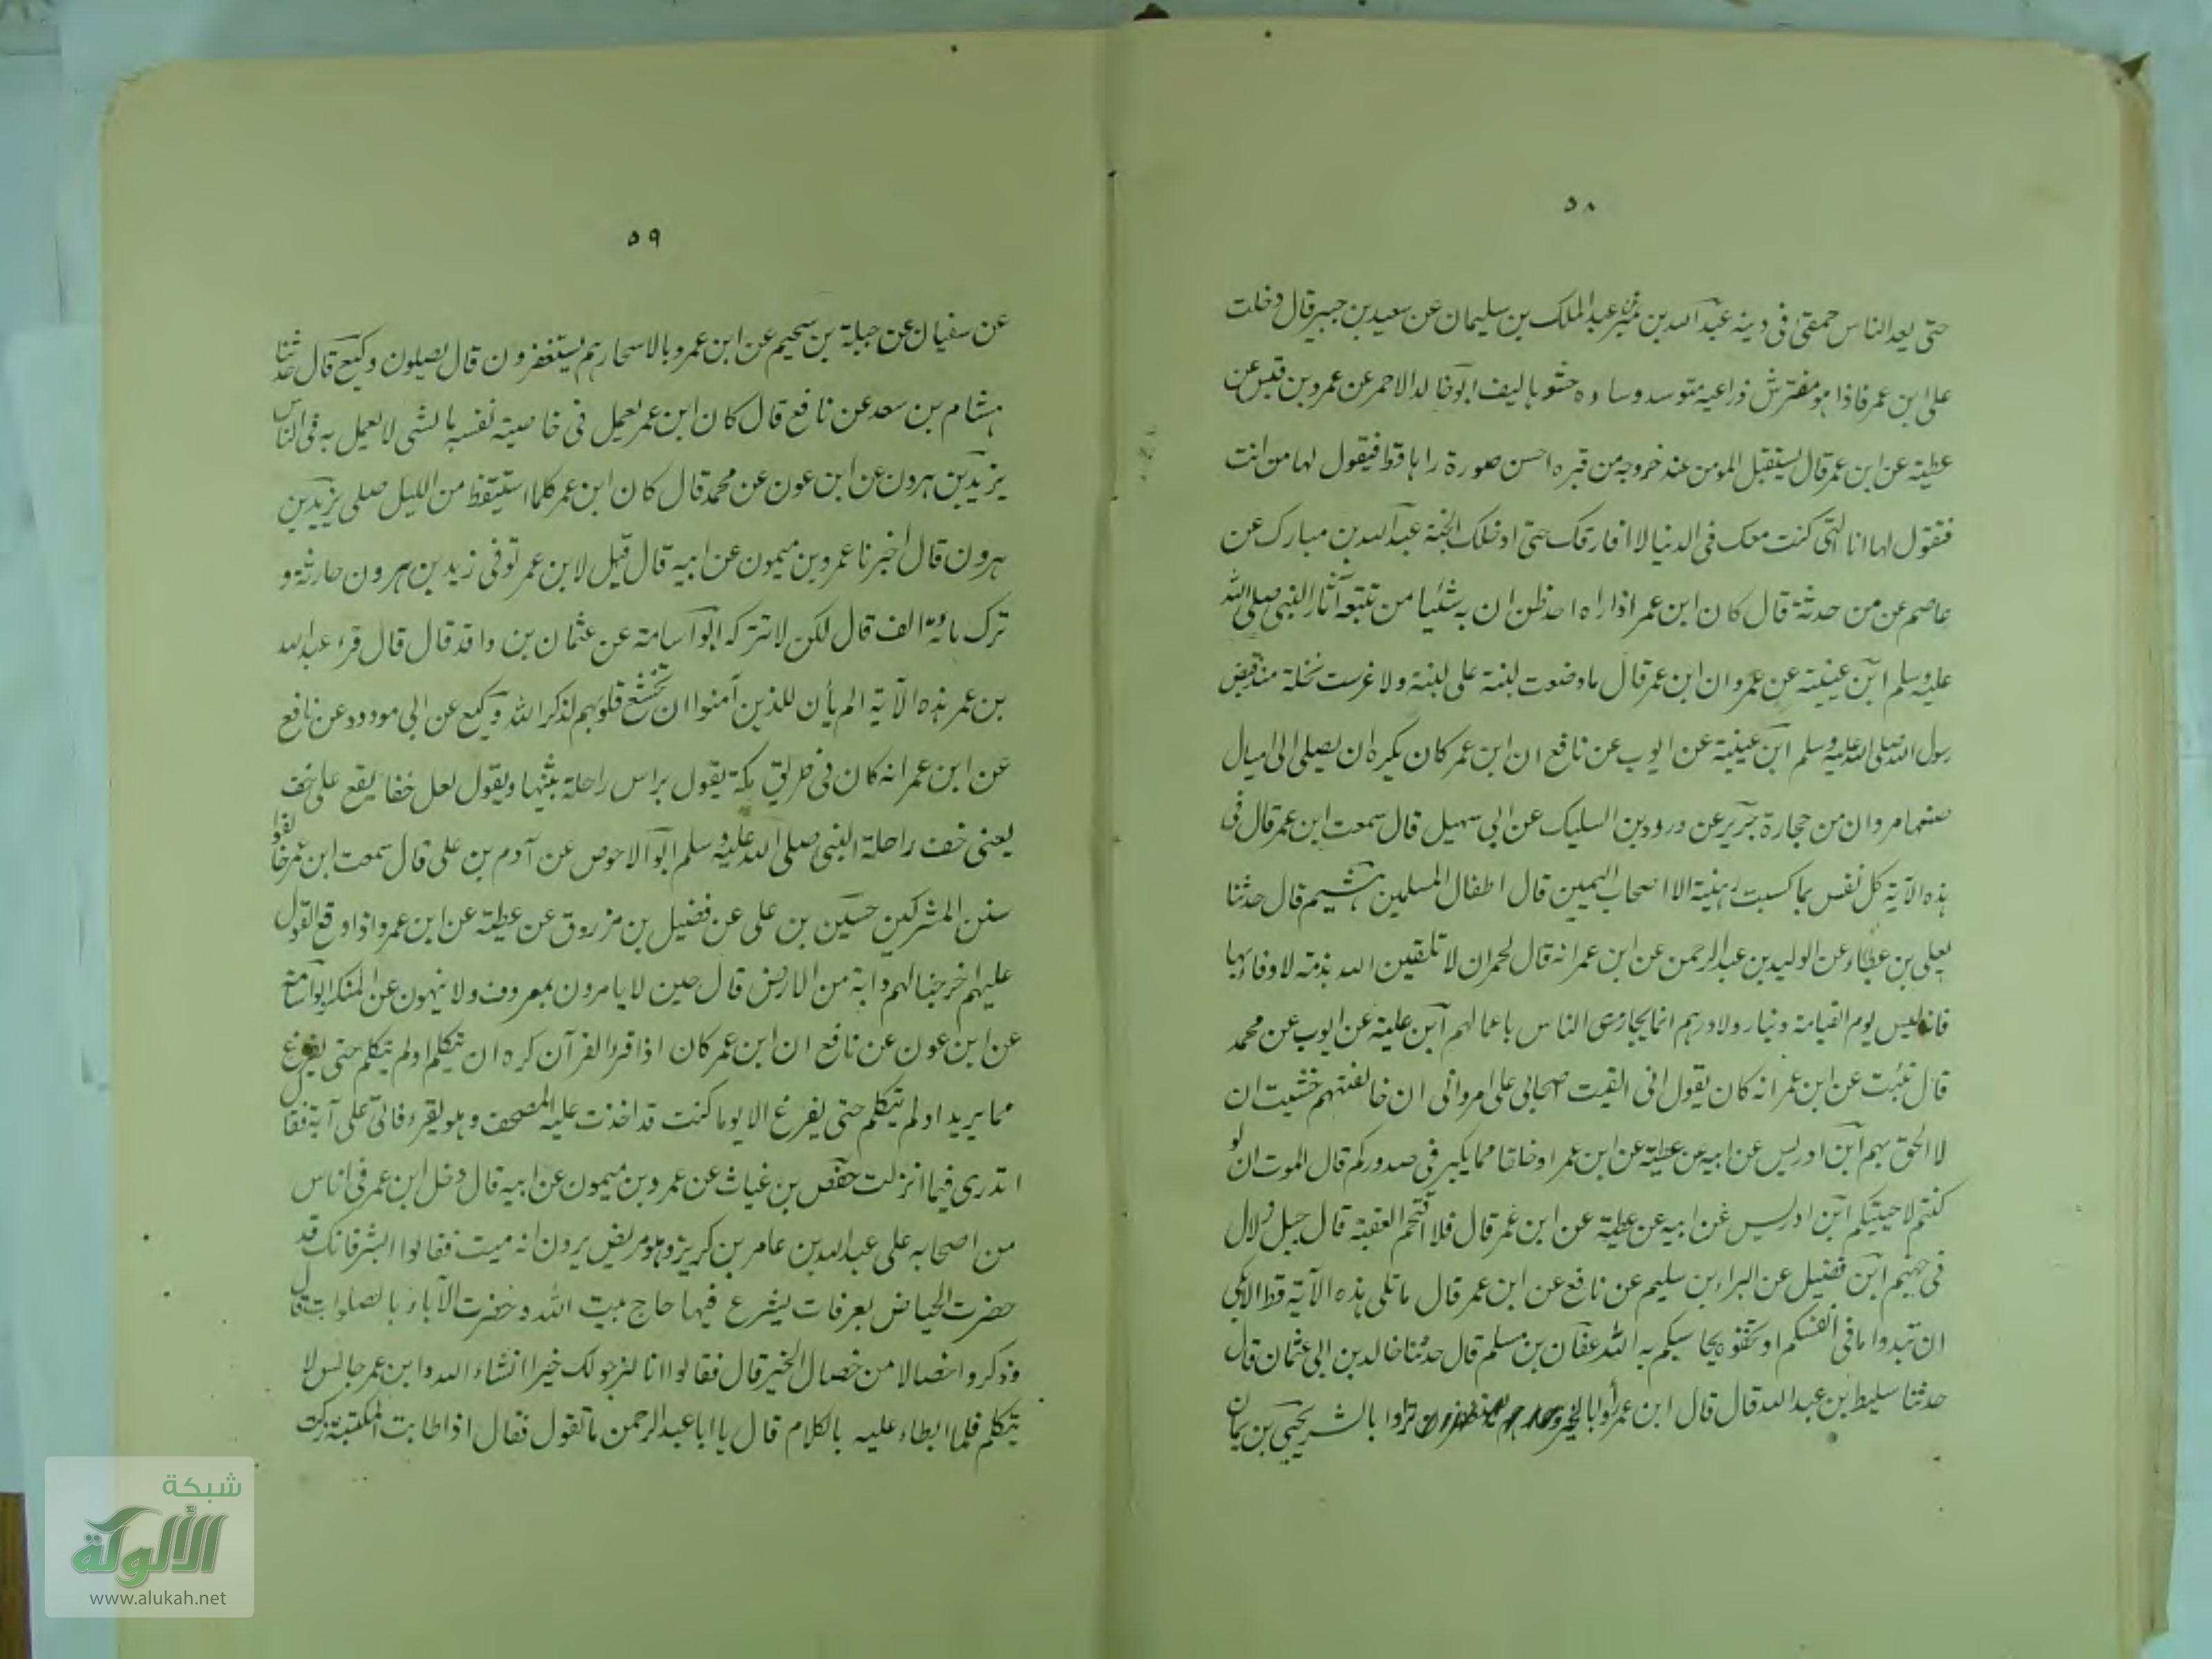 ٥٨
حتى يعد الناس حمقى فى دينه عبد الله بن نمير عن عبد الملك بن سليمان عن سعيد بن جبير قال دخلت
على ابن عمر فاذا هو مفترش ذراعيه متوسد وسادة حشوها ليف ابو خالد الاحمر عن عمرو بن قيس عن
عطية عن ابن عمر قال يستقبل المومن عند خروجه من قبره احسن صورة راها قط فيقول لها من انت
فتقول لها انا التى كنت معك فى الدنيا لا افارقك حتى ادخلك الجنة عبد الله بن مبارك عن
عاصم عن من حدثه قال كان ابن عمر اذا راه احد ظن ان به شئيا من تتبعه آثار النبى صلى الله
عليه وسلم ابن عيينة عن عمرو ان ابن عمر قال ما وضعت لبنة على لبنة ولا غرست نخلة منذ قبض
رسول الله صلى الله عليه وسلم ابن عيينة عن ايوب عن نافع ان ابن عمر كان يكره ان يصلى الى اميال
صنعها مروان من حجارة جرير عن درود بن السليك عن ابى سهيل قال سمعت ابن عمر قال فى
هذه الآية كل نفس بما كسبت رهينة الا اصحاب اليمين قال اطفال المسلمين هشيم قال حدثنا
يعلى بن عطاء عن الوليد بن عبد الرحمن عن ابن عمر انه قال لحمران لا تلقين الله بذمة لا وفاء بها
فانه ليس يوم القيامة دينار ولا درهم انما يجازى الناس باعمالهم ابن علية عن ايوب عن محمد
قال نبئت عن ابن عمر انه كان يقول انى القيت صحابى على امر وانى ان خالفتهم خشيت ان
لا الحق بهم ابن ادريس عن ابيه عن عطية عن ابن عمر او خلقا مما يكبر فى صدوركم قال الموت ان لو
كنتم لاحيتيكم ابن ادريس عن ابيه عن عطية عن ابن عمر قال فلا اقتحم العقبة قال جبل زلال
فى جهنم ابن فضيل عن البراء بن سليم عن نافع عن ابن عمر قال ما تلى هذه الآية قط الا بكى
ان تبدوا ما فى انفسكم او تخفوه يحاسبكم به الله عفان بن مسلم قال حدثنا خالد بن ابى عثمان قال
حدثنا سليط بن عبد الله قال قال ابن عمر بالشر يحيى بن يمان
٥٩
عن سفيان عن جبلة بن سحيم عن ابن عمر وبالاسحار هم يستغفرون قال يصلون وكيع قال حدثنا
هشام بن سعد عن نافع قال كان ابن عمر يعمل فى خاصية نفسه بالشى لا يعمل به فى الناس
يزيد بن هرون عن ابن عون عن محمد قال كان ابن عمر كلما استيقظ من الليل صلى يزيد بن
هرون قال اخبرنا عمرو بن ميمون عن ابيه قال قيل لابن عمر توفى زيد بن هرون حارثة و
ترك مائة الف قال لكن لا تتركه ابو اسامة عن عثمان بن واقد قال قال قرء عبد الله
بن عمر هذه الآية الم يأن للذين آمنوا ان تخشع قلوبهم لذكر الله وكيع عن ابى مودود عن نافع
عن ابن عمر انه كان فى طريق مكة يقول براس راحلة يثنيها ويقول لعل خفا يقع على خف
يعنى خف راحلة النبى صلى الله عليه وسلم ابو الاحوص عن آدم بن على قال سمعت ابن عمر خالفوا
سنن المشركين حسين بن على عن فضيل بن مرزوق عن عطية عن ابن عمر واذا وقع القول
عليهم اخرجنا لهم دابة من الارض قال حين لا يامرون بمعروف ولا ينهون عن المنكر ابو اسامة
عن ابن عون عن نافع ان ابن عمر كان اذا قرء القرآن كره ان يتكلم او لم يتكلم حتى يفرغ
مما يريد او لم يتكلم حتى يفرغ الا يوما كنت قد اخذت عليه المصحف وهو يقرء فاتى على آية فقال
اتدرى فيما انزلت حفص بن غياث عن عمرو بن ميمون عن ابيه قال دخل ابن عمر فى اناس
من اصحابه على عبد الله بن عامر بن كريز وهو مريض يرون انه ميت فقالوا ابشر فانك قد
حضرت الحياض بعرفات يشرع فيها حاج بيت الله وحضرت الآبار بالصلوات قال
وذكروا خصالا من خصال الخير قال فقالوا انا لنرجو لك خيرا انشاء الله وابن عمر جالس لا
يتكلم فلما ابطاء عليه بالكلام قال يا ابا عبد الرحمن ما تقول فقال اذا طابت المكسبة زكت
شبكة
الألوكة
www.alukah.net